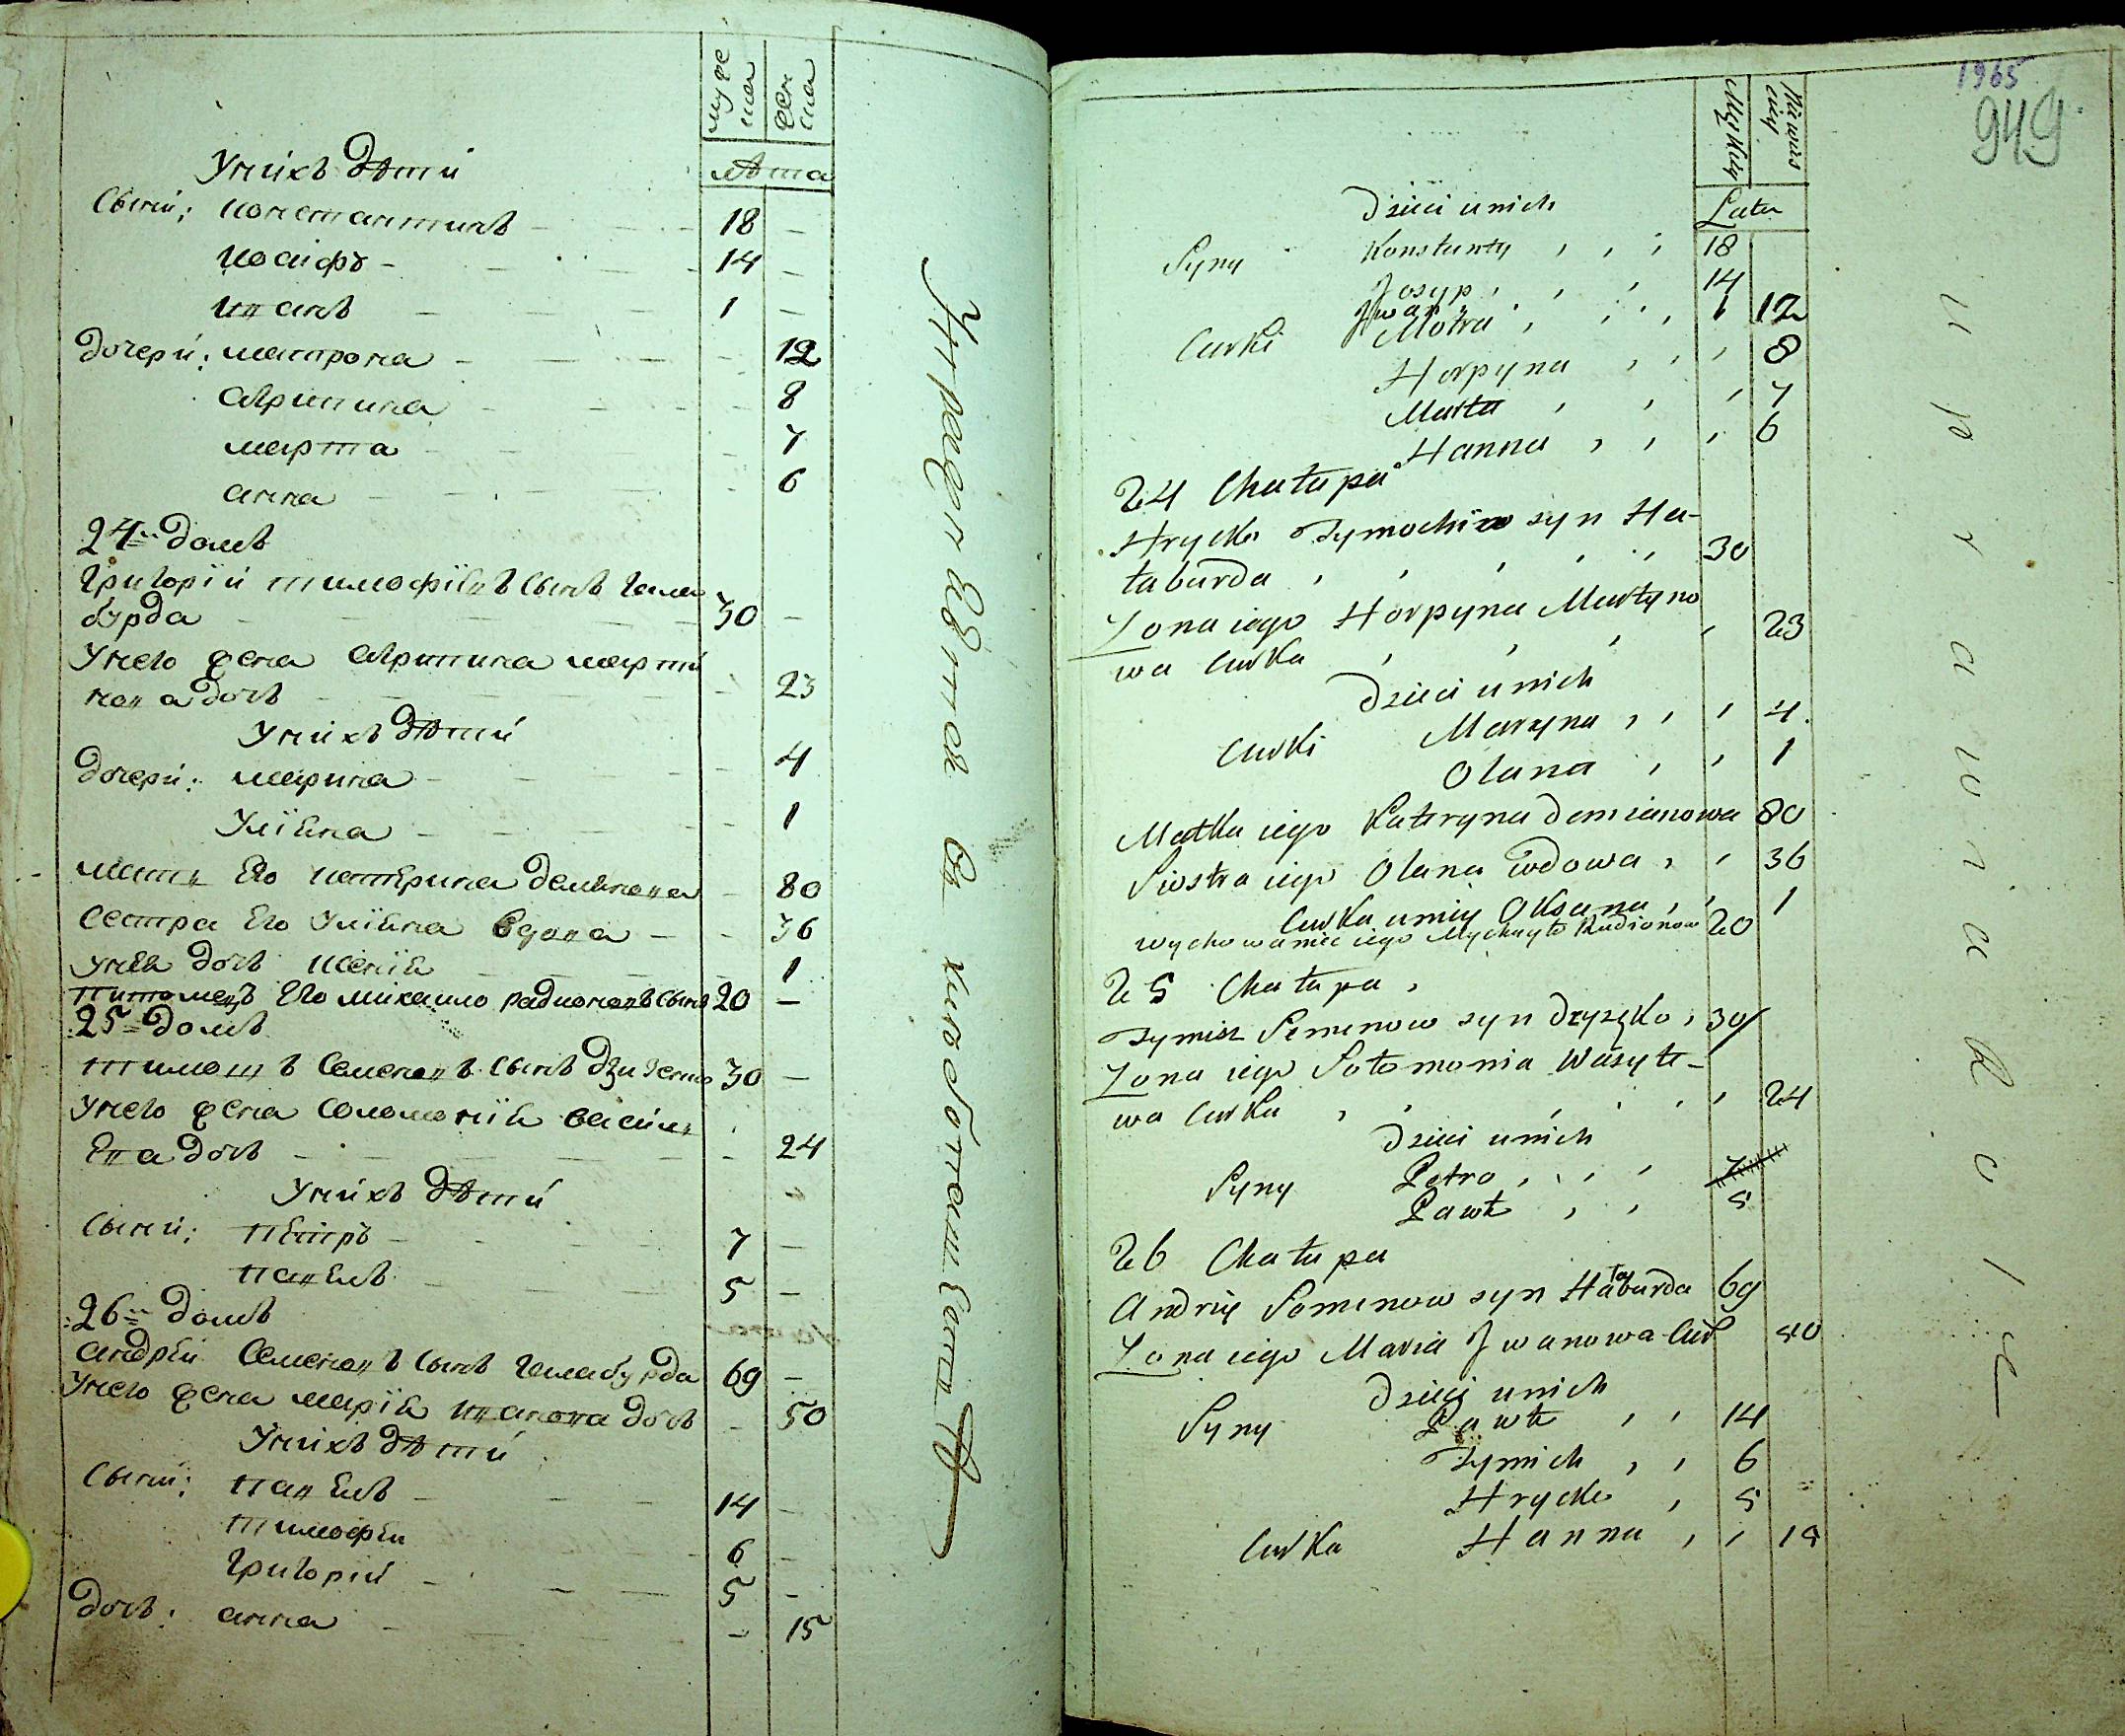 муже
ска
жен
ска
лѣта
У нихъ дѣти
Сыни: константинъ 18
иосифъ 14
иванъ 1
Дочери: матрона 12
агрипина 8
марта 7
анна 6
24й домъ
Григорій тимофіевъ сынъ гала
бурда 30
У него жена агрипина марти
нова дочь 23
У нихъ дѣти
Дочери: марина 4
Уліяна 1
мать Его катерина демянова 80
Сестра Его Уліяна вдова 36
У неи дочь ксенія 1
питомецъ Его михаило радионовъ сынъ 20
25й домъ
тимошъ Семеновъ сынъ 30
У него жена соломонія васил
Ева дочь 24
У нихъ дѣти
Сыни: петръ 7
павелъ 5
26й домъ
андрей Семеновъ сынъ галабурда 69
У него жена марія иванова дочь 50
У нихъ дѣти
Сыни: павелъ 14
тимофеи 6
Григорій 5
Дочь: анна 15
1965
949
Męzkiey
Niewies
ciey
Lata
Dzieci u nich
Syny Konstanty 18
Josyp 14
Jwan 1
Curki Motra 12
Horpyna 8
Marta 7
Hanna 6
24 Chałupa
Hrycko Tymochiw syn Ha-
łaburda 30
Zona iego Horpyna Martyno
wa Curka 23
Dzieci u nich
Curki Maryna 4
Olana 1
Matka iego Kateryna Demianowa 80
Siostra iego Olana wdowa 36
Curka u niey Oksana 1
wychowaniec iego Mychayło Radionow 20
25 Chałupa
Tymisz Semenow syn 30
Zona iego Sołomonia Wasyle-
wa Curka 24
Dzieci u nich
Syny Petro 7
Pawło 5
26 Chałupa
Andriy Semenow syn Hałaburda 69
Zona iego Maria Jwanowa Cur 50
Dzieci u nich
Syny Pawło 14
Tymich 6
Hrycko 5
Curka Hanna 15